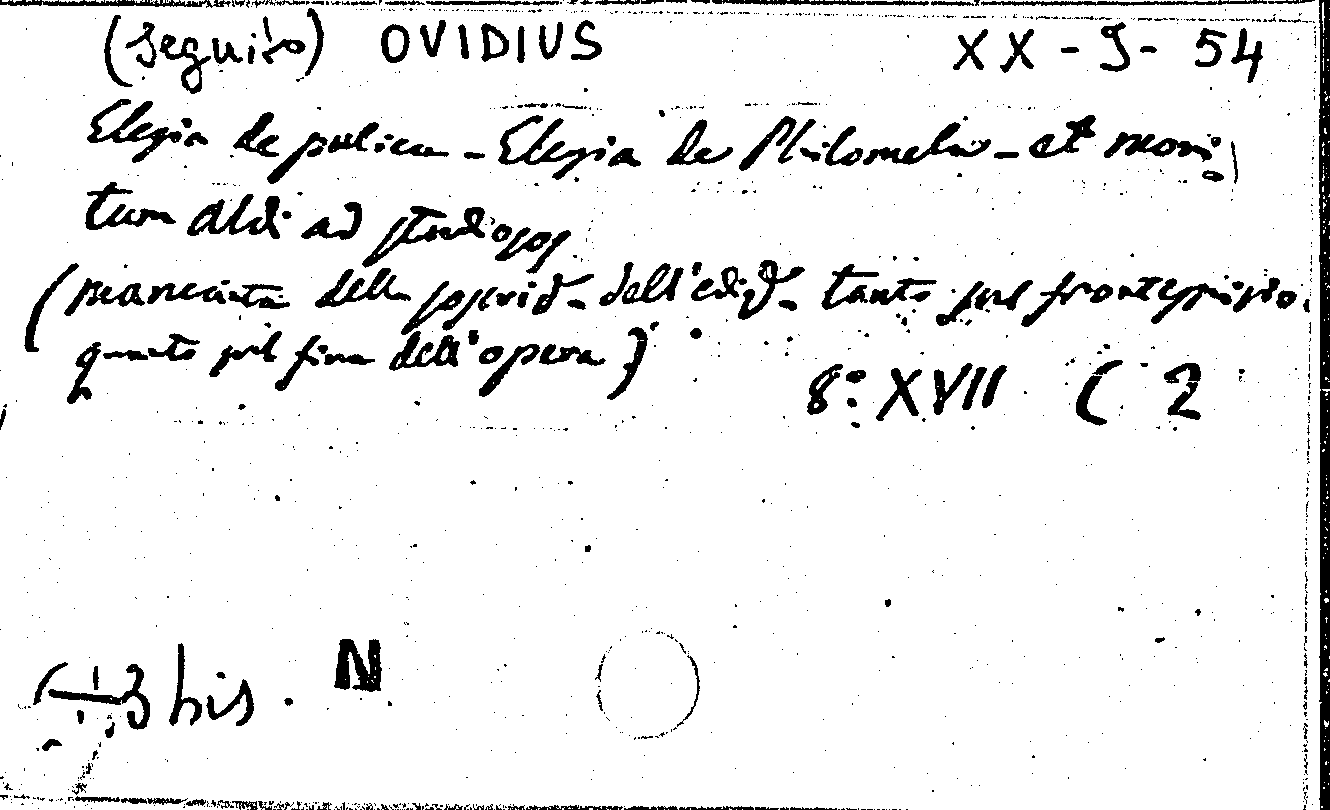 (seguito) OVIDIUS XX-J-54
Elegia de pulice - Elegia de Philomela - et moni
tum Aldi ad studiosos
(mancante della sovrid. dell'ediz. tanto sul frontespizio.
quanto sul fine dell'opera)
8º XVII ( 2
3 bis. N